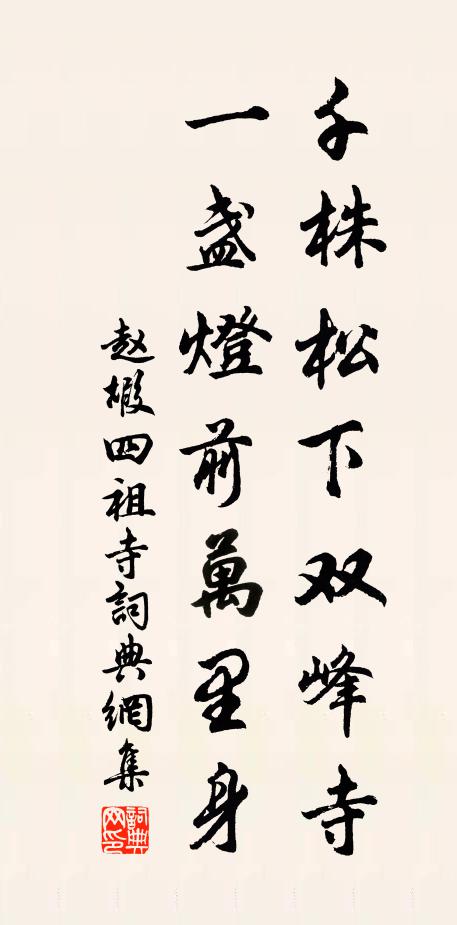 千株松下双峰寺
一盏燈前萬里身
赵椴四祖寺詞典網集
詞典网印